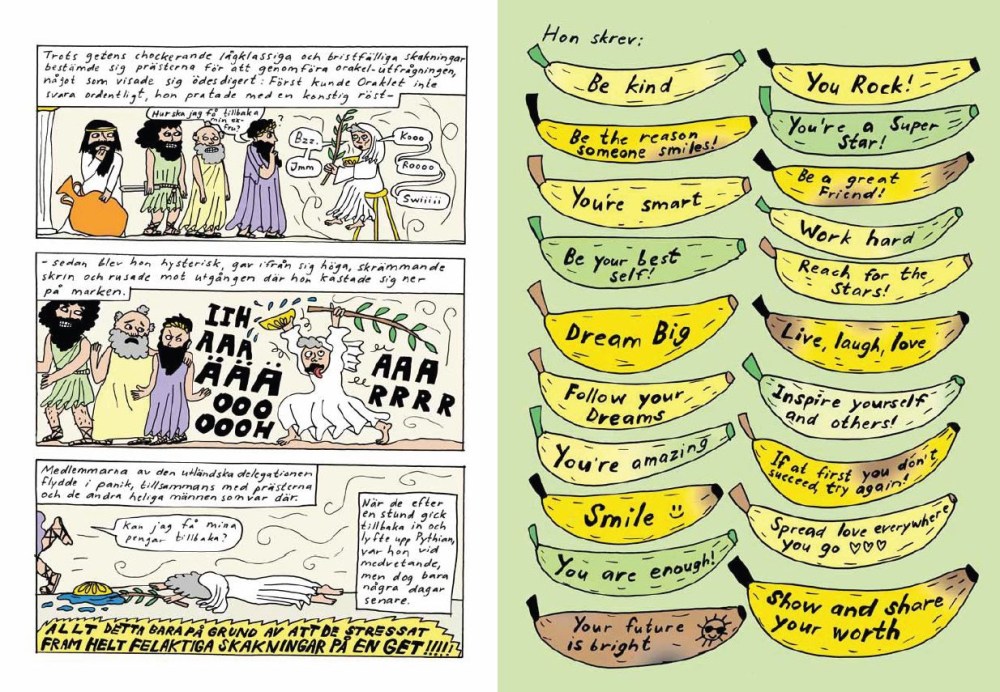 Trots getens chockerande lågklassiga och bristfälliga skakningar
bestämde sig prästerna för att genomföra orakel-utfrågningen,
något som visade sig ödesdigert: Först kunde Oraklet inte
svara ordentligt, hon pratade med en konstig röst-
Hur ska jag få tillbaka
min ex-
fru?
?
Bzz.
Jmm
Kooo
Roooo
Swiiiii
- sedan blev hon hysterisk, gav ifrån sig höga, skrämmande
skrin och rusade mot utgången där hon kastade sig ner
på marken.
IIH
AAA
ÄÄÄ
OOO
OOOH
AAA
RRRR
Medlemmarna av den utländska delegationen
flydde i panik, tillsammans med prästerna
och de andra heliga männen som var där.
Kan jag få mina
pengar tillbaka?
När de efter
en stund gick
tillbaka in och
lyfte upp Pythian,
var hon vid
medvetande,
men dog bara
några dagar
senare.
ALLT DETTA BARA PÅ GRUND AV ATT DE STRESSAT
FRAM HELT FELAKTIGA SKAKNINGAR PÅ EN GET!!!!!
Hon skrev:
Be kind
Be the reason
someone smiles!
You're smart
Be your best
self!
Dream Big
Follow your
Dreams
You're amazing
Smile
You are enough!
Your future
is bright
You Rock!
You're a Super
Star!
Be a great
Friend!
Work hard
Reach for the
Stars!
Live, laugh, love
Inspire yourself
and others!
If at first you don't
succeed, try again!
Spread love everywhere
you go ♡♡♡
Show and share
your worth